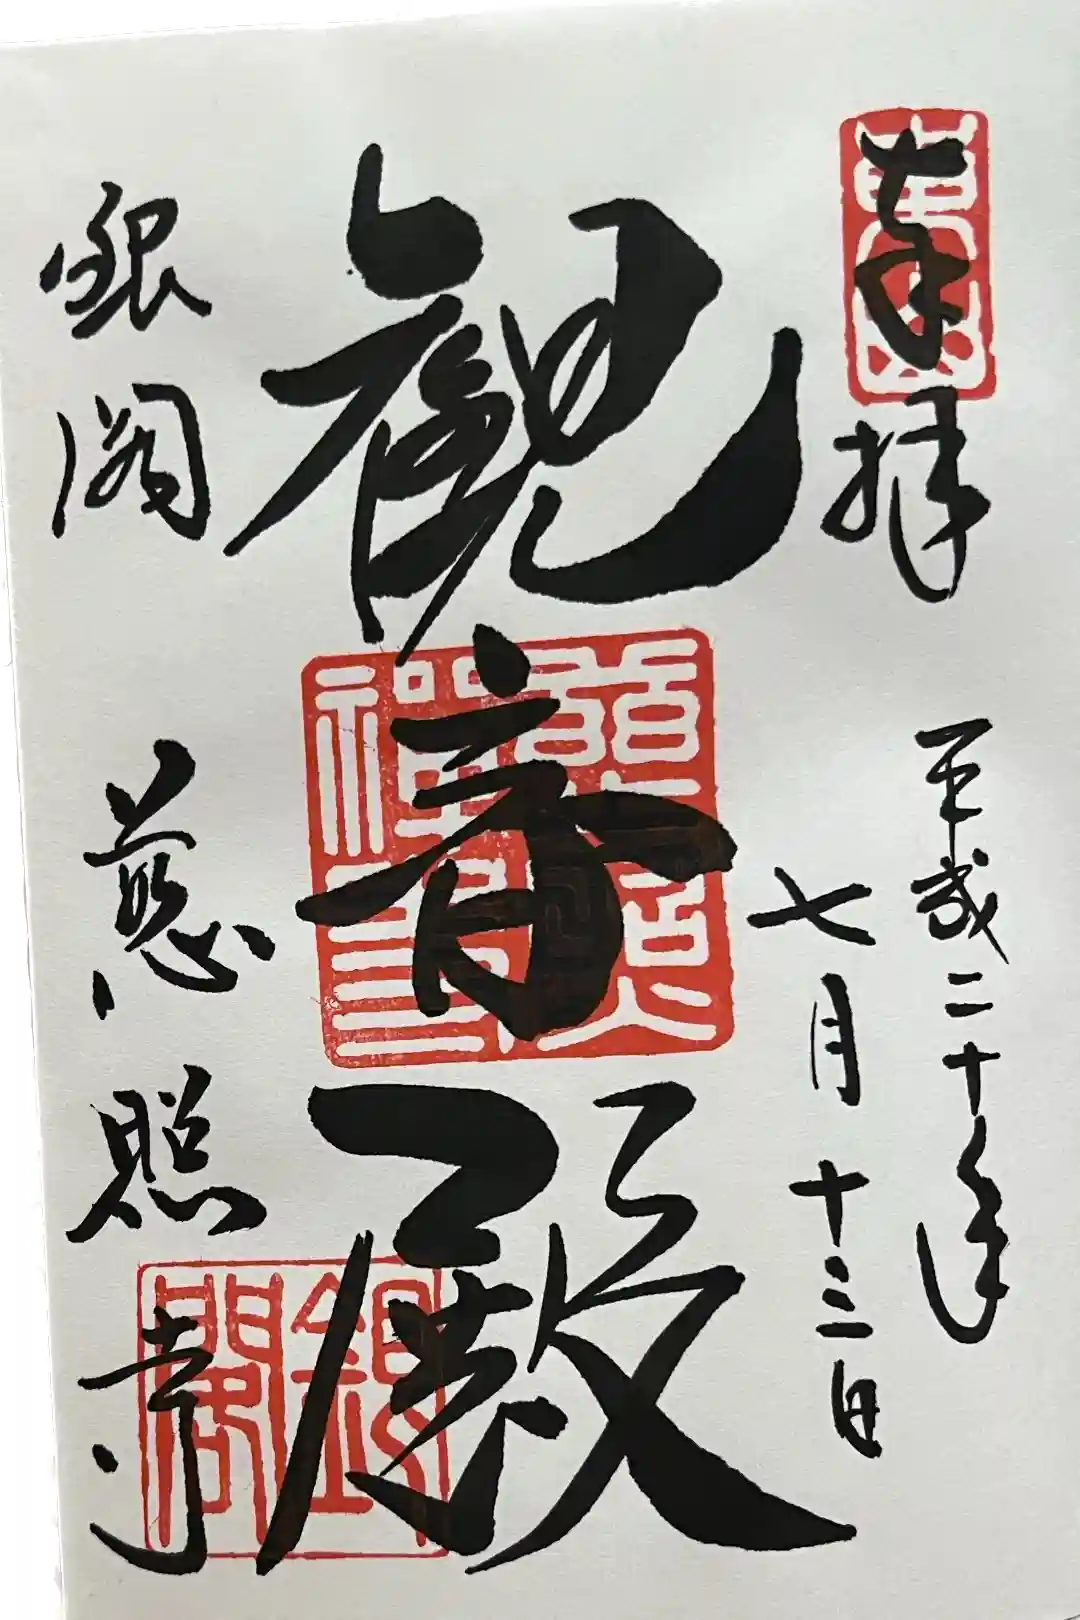 奉拝
平成二十年
七月十三日
観音殿
銀閣
慈照寺
東山
銀閣